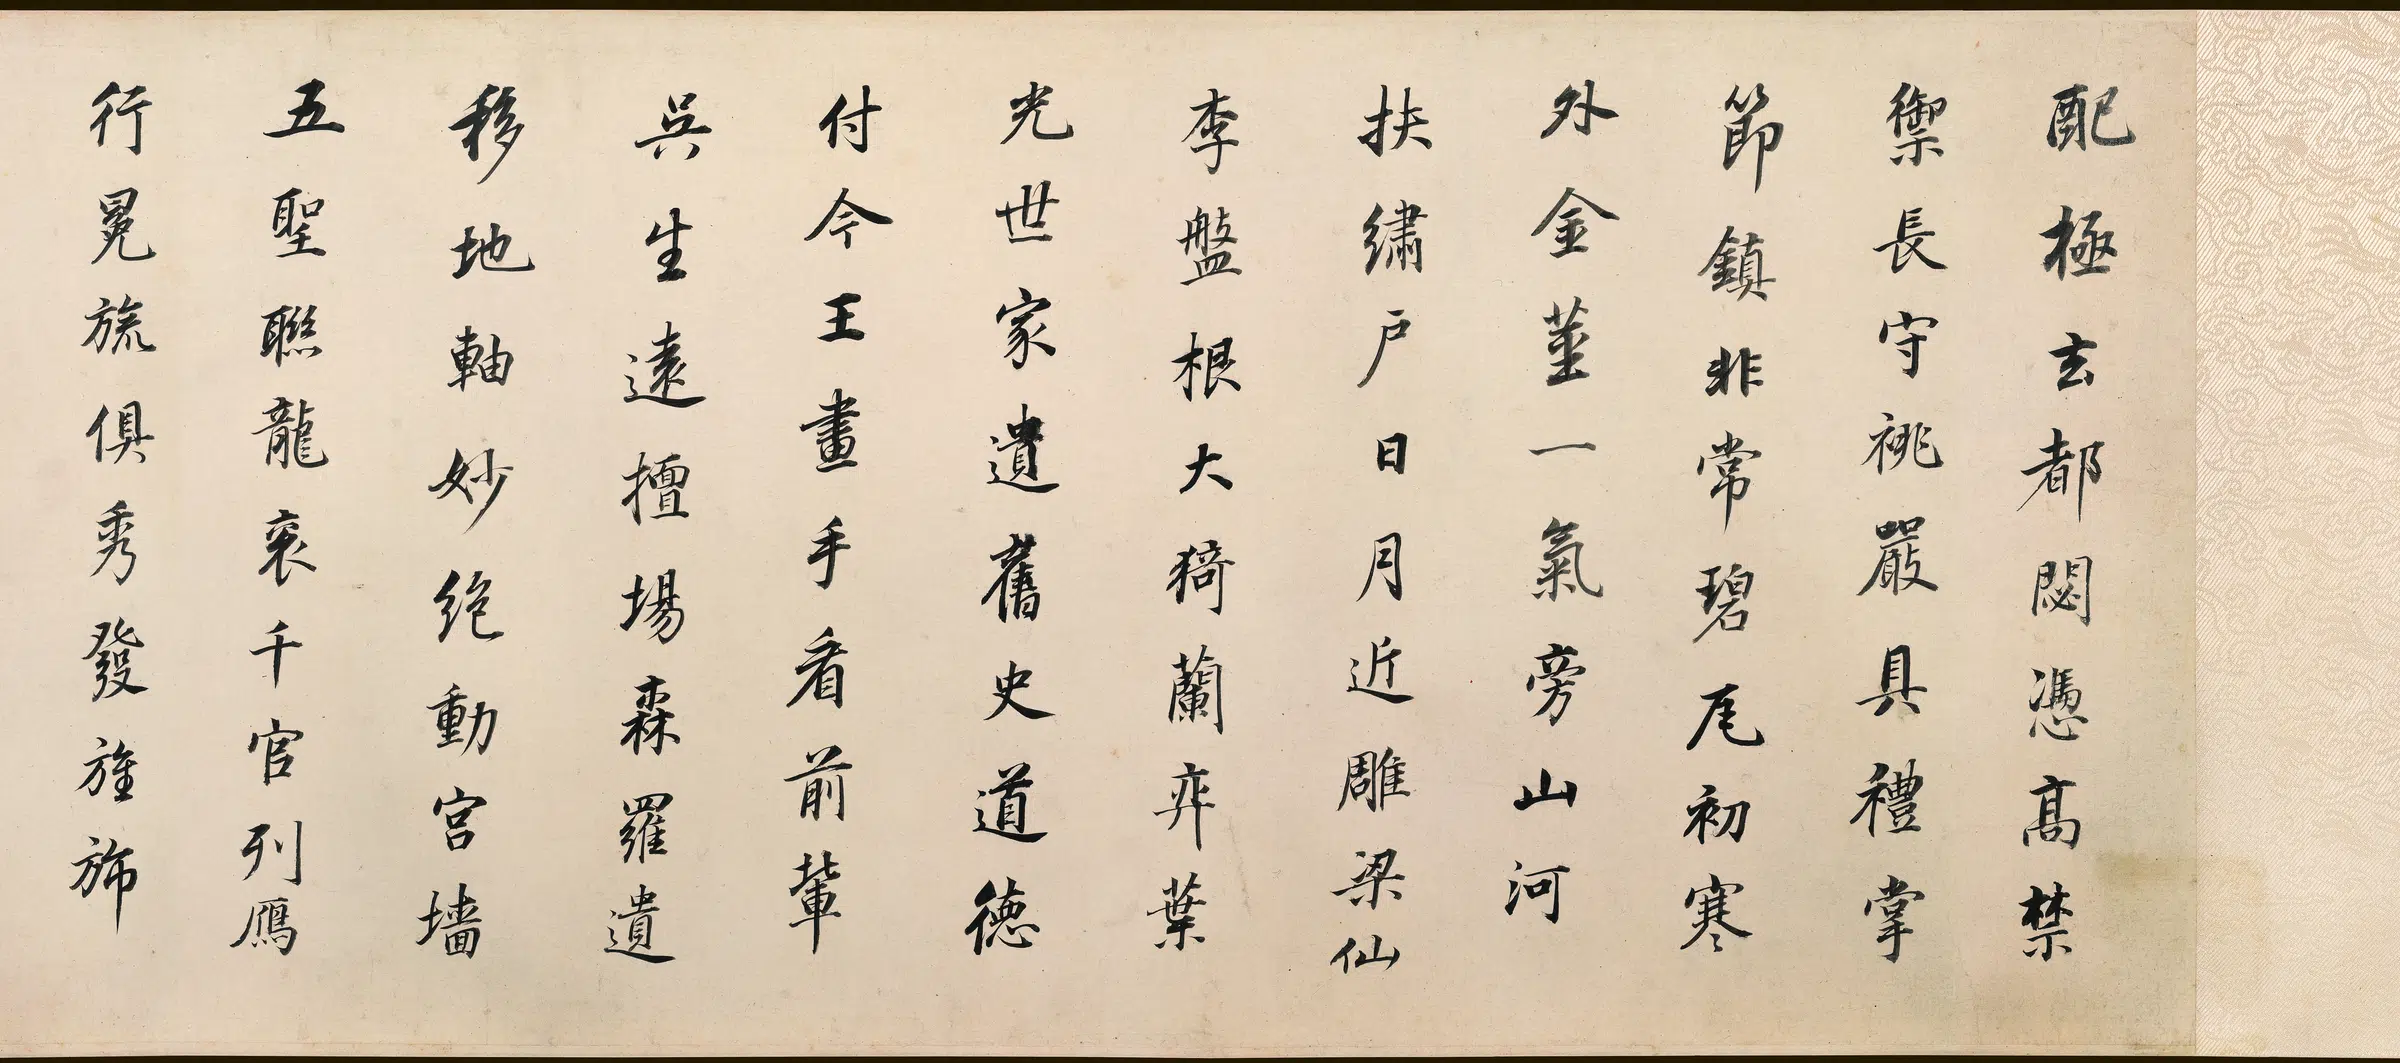 配極玄都閟憑髙禁
禦長守祧嚴具禮掌
節鎮非常碧尾初寒
外金莖一氣旁山河
扶繡戶日月近雕梁仙
李盤根大猗蘭弈葉
光世家遺舊史道德
付今王畫手看前輩
吳生遠擅場森羅遺
移地軸妙絕動宮墻
五聖聯龍衮千官列鴈
行冕旒俱秀發旌斾